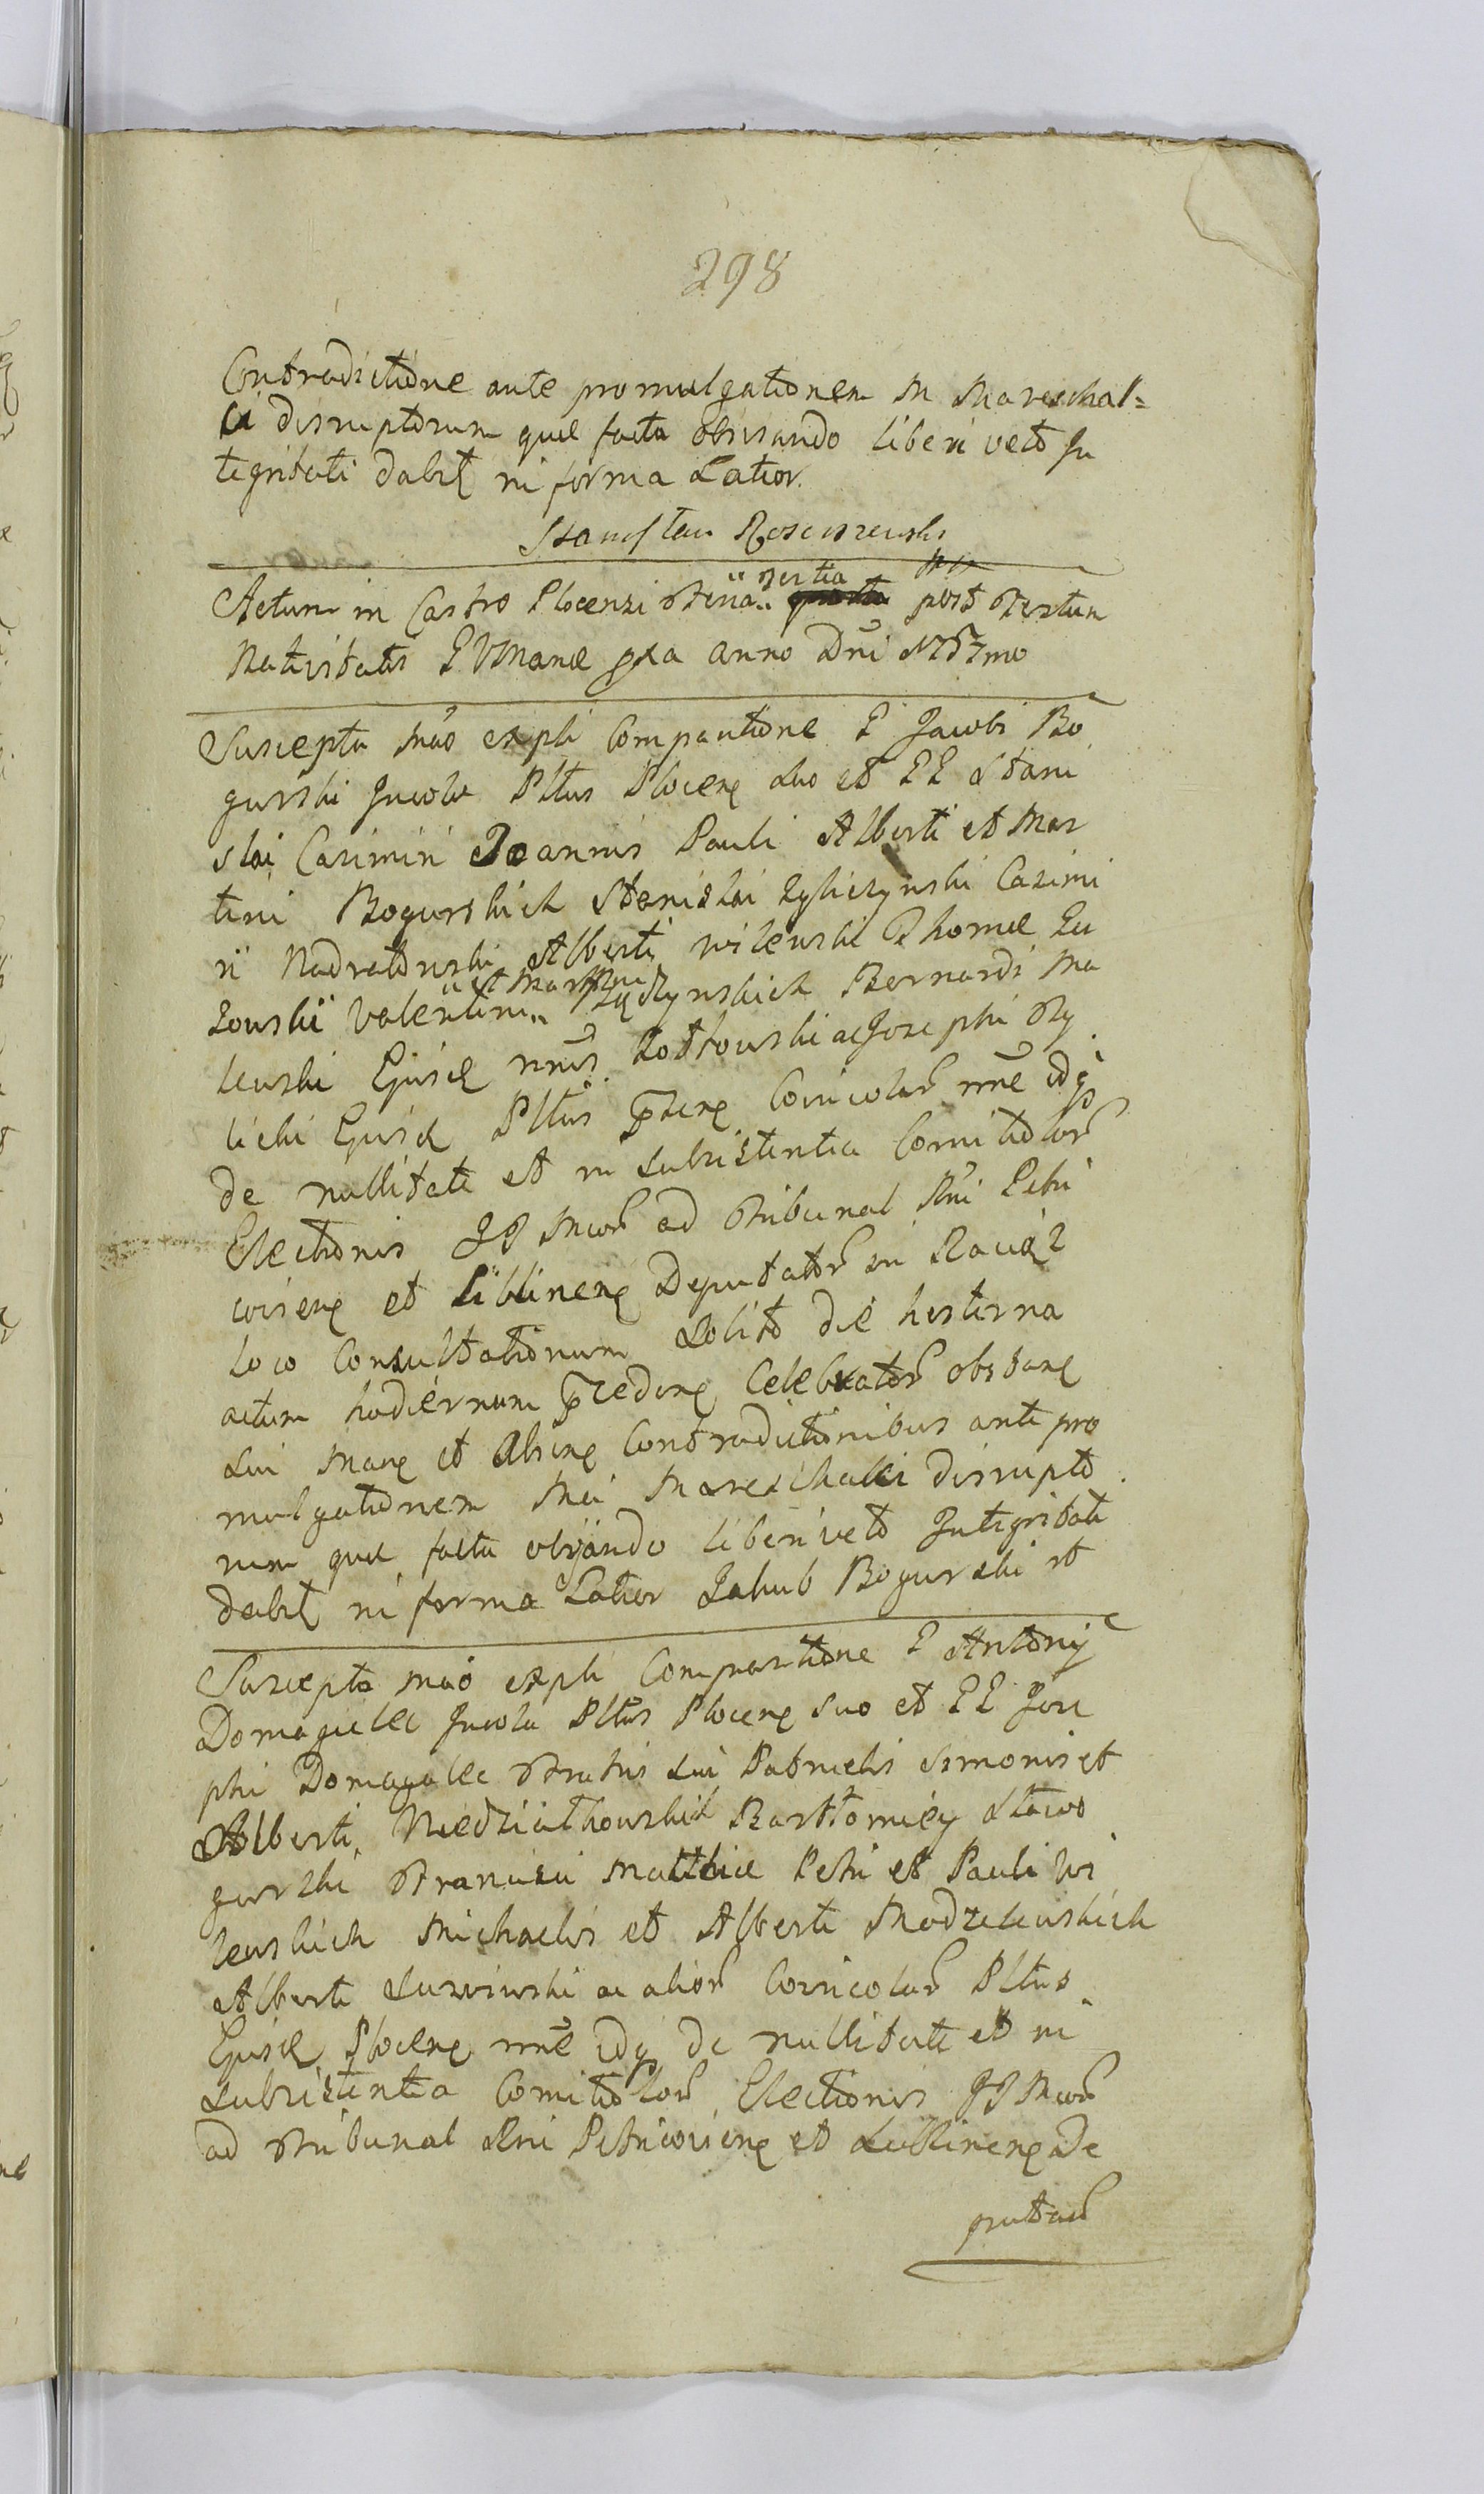 298
Contradictione ante promulgationem in Mareschal=
ci disruptorum quæ facta obviando liberi veto In
tegritati dabit in forma Latior.
Stanisław Rosciszewski
Actum in Castro Plocensi Feria tertia post Festum
Nativitatis BVMariæ pxa anno Dni 1757mo
Suscepta Mão expli Comparitione G Jacobi Bo
gurski Incolæ Pltus Plocen suo et GG Stani
slai Casimiri Joannis Pauli Alberti et Mar
tini Bogurskich Stanislai Zgliczynski Casimi
ri Nadratowski Alberti Milewski Thomæ Lu
et Martini
zowski Valentini Rędzynskich Bernardi Ma
lewski Ejusd nnis Kottowski ac Josephi Ry
licki Ejusd Pltus Pzten Coincolar nne idq
de nullitate et in subsistentia Comitiolor
Electionis JJ Mcor ad Tribunal Rni Petri
covien et Lublinen Deputator in Raciąz
loco Consultationum solito die hesterna
actum hodiernum præceden Celebrator obstan
sui Man et Alien Contradictionibus ante pro
mulgationem Mci Mareschalci disrupto
rum quæ facta obviando liberi veto Integritati
dabit in forma Latior Jakub Bogurski et
Suscepta Mão expli Comparitione G Antonij
Domagalec Incolæ Pltus Plocen suo et GG Jose
phi Domagalec Fratris sui Patruelis Simonis et
Alberti Niedziałkowskich Bartłomiey Stawo
gurski Francisci Matthiæ Petri et Pauli Wi
lewskich Michaelis et Alberti Modzelewskich
Alberti ac alior Coincolar Pltus
Ejusd Plocen nne idq de nullitate et in
subsistentia Comitiolor Electionis JJ Mcor
ad Tribunal Rni Petricovien et Lublinen De
putator